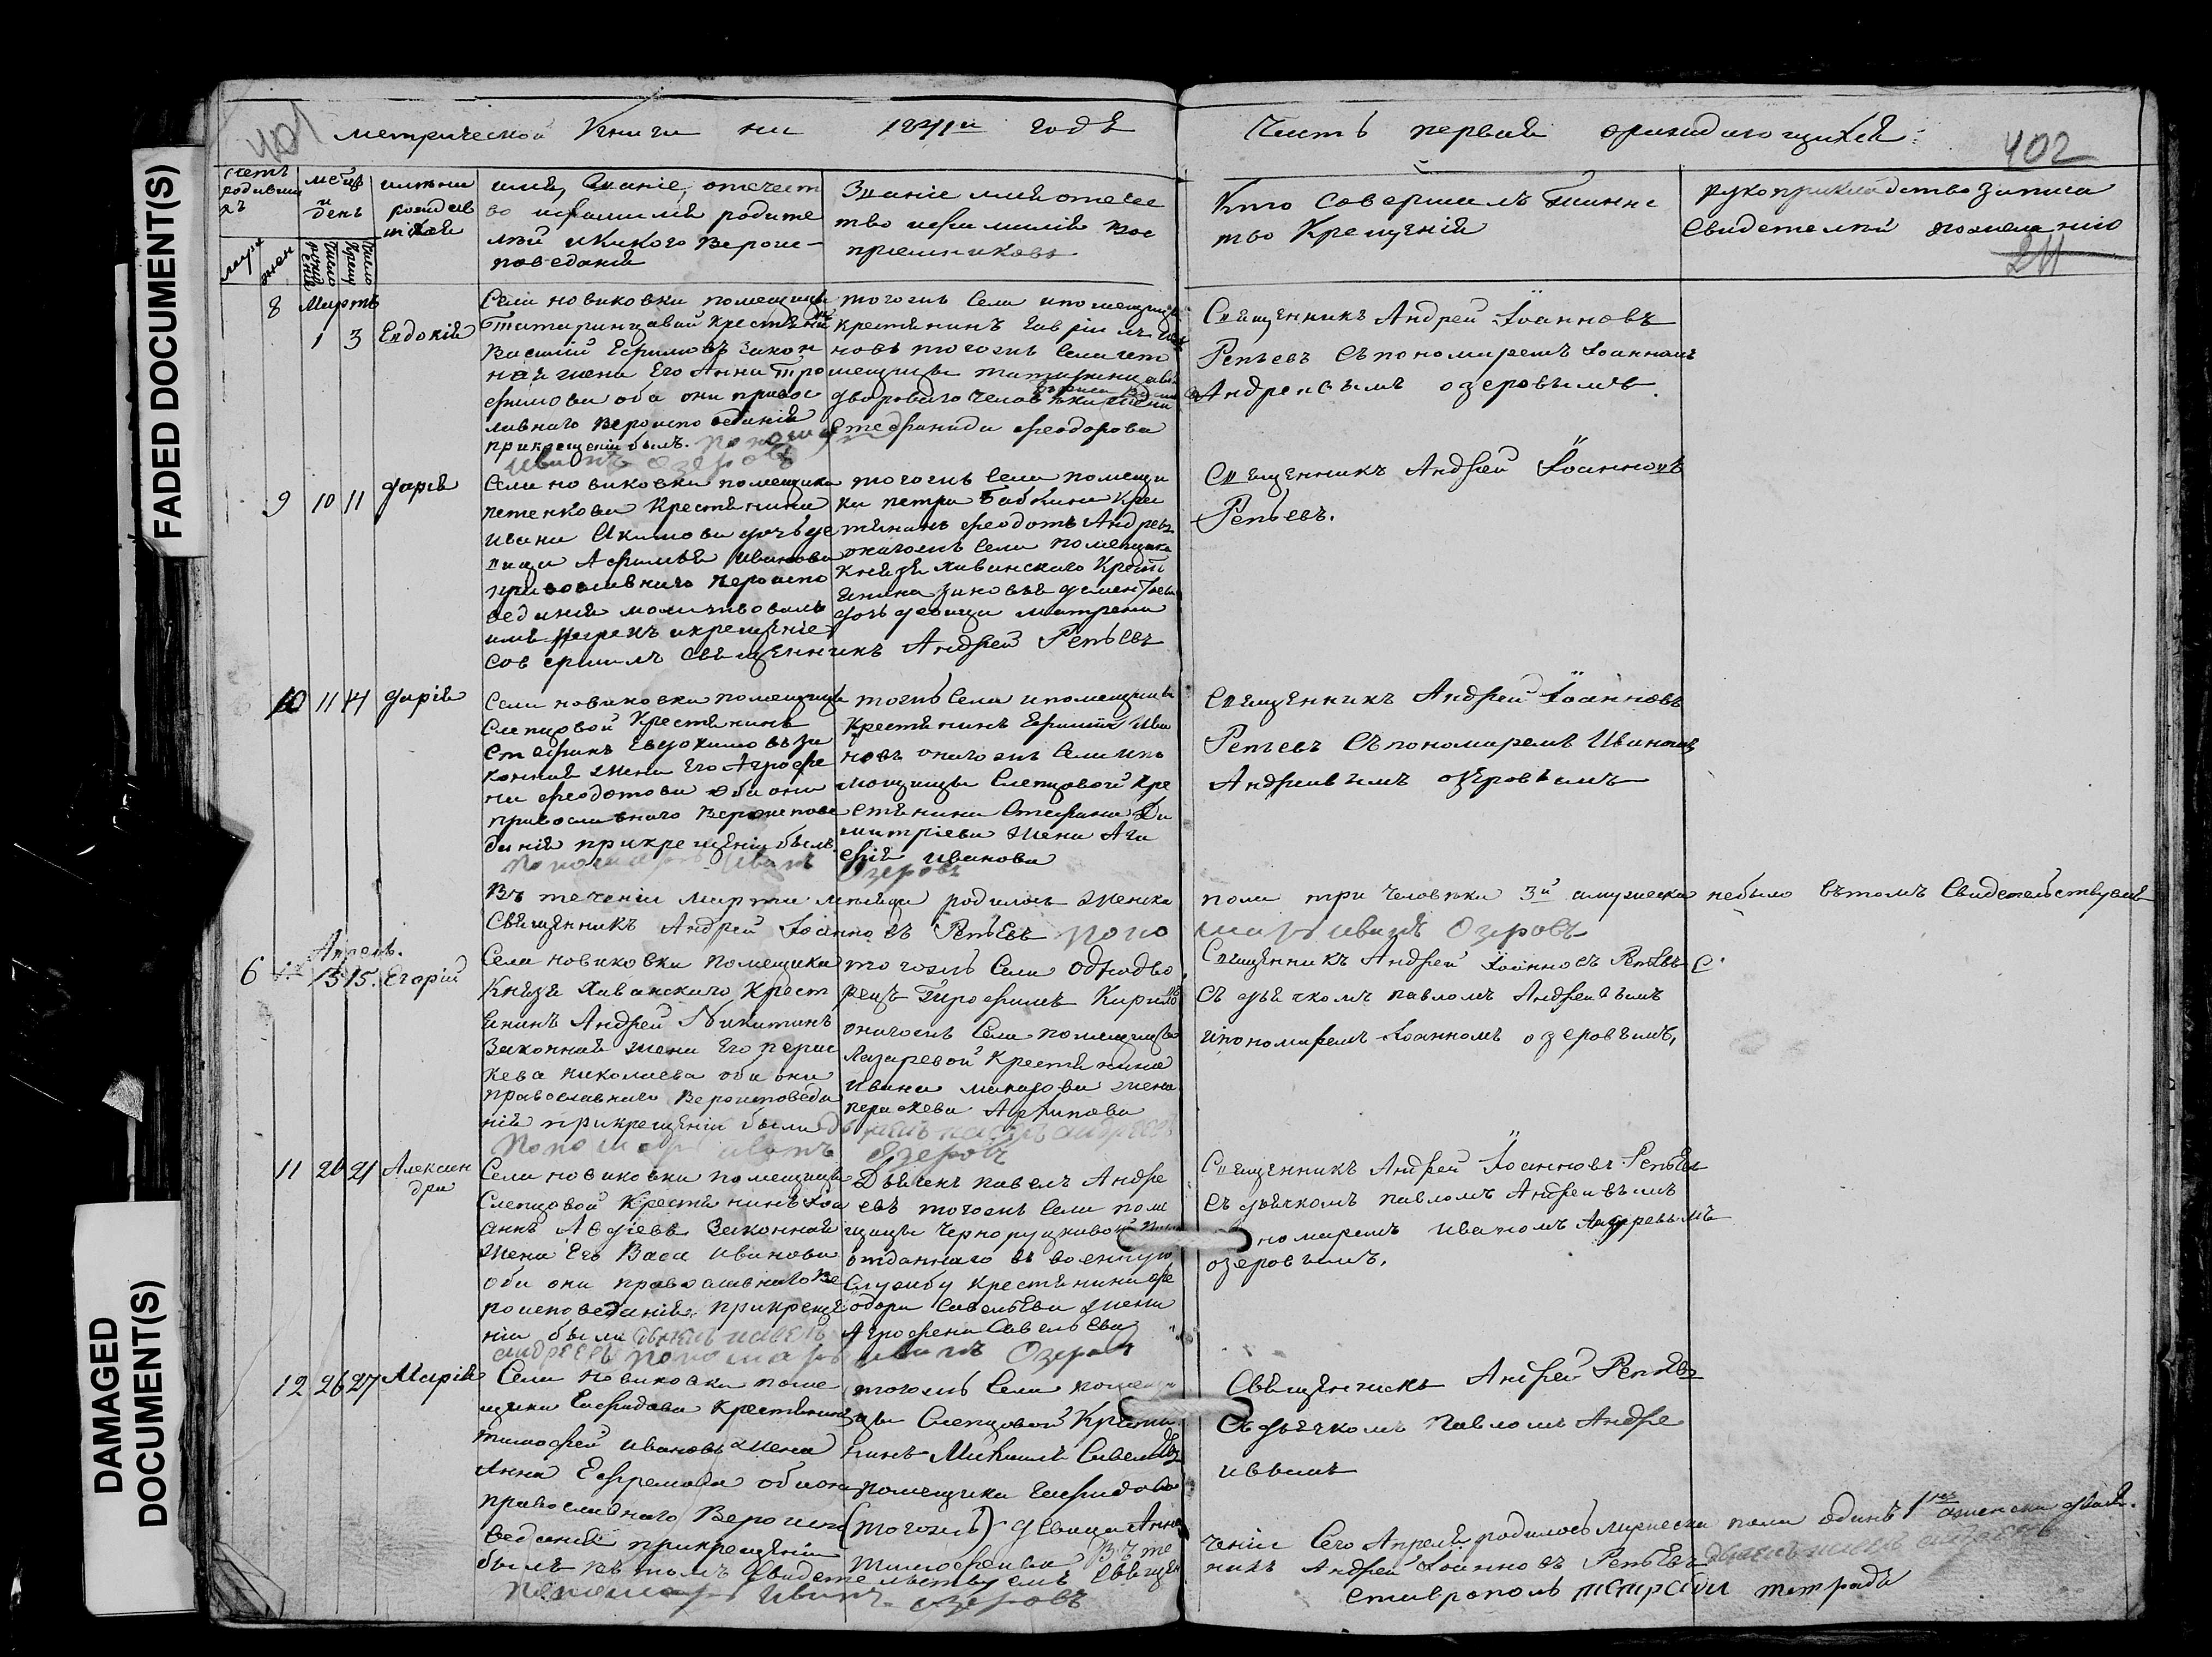 FADED DOCUMENT(S)
DAMAGED
DOCUMENT(S)
401
метрической Книги на 1841й годъ
Часть первая о раждающихся
402
месяцъ
и
день
имяна
имя, Званіе, отечест
во и фамилія родите
лей и какого Вероис-
поведанія
Званіе имя отече
ство и фамилія вос
приемниковъ
Кто Совершилъ Таинс
тво Крещенія
рукоприкладство записа
Свидетелей по желанію
211
муж
жен
8 Мартъ
1 3 Евдокія
Села новиковки помещицы
Василій Ефимовъ закон
ная жена его Анна Тро
фимова оба они правос
лавнаго Вероисповеданія
при крещеніи былъ. пономарь
иванъ озеровъ
тогожъ Села и помещицы
крестьянинъ Гавріилъ
Степанида феодорова
Священникъ Андрей Іоанновъ
Репьевъ Съ пономаремъ Іоанномъ
Андреевымъ озеровымъ
9 10 11 дарія
Села новиковки помещика
петенкова Крестьянина
ивана Акимова дочь де
вица Афимья иванова
православнаго вероиспо
веданія молитвовалъ
имя нарекъ и крещеніе
совершилъ священникъ Андрей Репьевъ
тогожъ Села помещи
ка петра Бабкина Кре
стьянинъ феодотъ Андреевъ
онагожъ села помещика
Князя хованскаго Крест
ьянина зиновья дементьева
дочь девица матрена
Священникъ Андрей Іоанновъ
Репьевъ.
10 11 14 дарія
Села новиковки помещицы
Слепцовой Крестьянинъ
Стефанъ Евдокимовъ за
конная жена его Аграфе
на феодотова оба они
православнаго Вероиспове
данія при крещеніи былъ
пономарь иванъ Озеровъ
тогожъ Села и помещицы
Крестьянинъ Ефимъ Ива
новъ онагожъ Села и по
мещицы Слепцовой Кре
стьянина Стефана Ди
митріева жена Ага
фія иванова
Священникъ Андрей Іоанновъ
Репьевъ Съ пономаремъ Иваномъ
Андреевымъ озеровымъ
Въ теченіи марта месяца родилось женска пола три человека 3й а мужеска небыло въ томъ Свидетельствуемъ
Священникъ Андрей Іоанновъ Репьевъ пономарь иванъ Озеровъ
Апрель.
6 13 15. Егорій
Села новиковки помещика
Князя Хованскаго Крест
ьянинъ Андрей Никитинъ
Законная жена его парас
кева николаева оба они
православнаго Вероисповеда
нія при крещеніи были дьячекъ павелъ андреевъ
пономарь иванъ Озеровъ
тогожъ Села однодво
рецъ Трофимъ Кириловъ
онагожъ Села помещицы
Лазаревой Крестьянина
ивана макарова жена
параскева Архипова
Священникъ Андрей Іоанновъ Репьевъ С
съ дьячкомъ павломъ Андреевымъ
и пономаремъ Іоанномъ озеровымъ,
11 20 21 Алексан
дра
Села новиковки помещицы
Слепцовой Крестьянинъ Іоа
ннъ Авдіевъ Законная
жена Его Васа иванова
оба они православнаго Ве
роисповеданія при креще
ніи были дьячекъ павелъ
андреевъ пономарь иванъ Озеровъ
Дьячекъ павелъ Андре
евъ тогожъ Села поме
щицы
отданнаго въ военную
Службу крестьянина фе
одора Савельева жена
Аграфена Савельева
Священникъ Андрей Іоанновъ Репьевъ
съ дьячкомъ павломъ Андреевымъ
пономаремъ иваномъ Андреевымъ
озеровымъ.
12 26 27 Марія
Села новиковки поме
щика Крестьянинъ
тимофей ивановъ жена
Анна Ефремова оба они
православнаго Вероиспо
веданія при крещеніи
былъ въ томъ Свидетельствуемъ Священ
пономарь иванъ озеровъ
тогожъ Села помещи
цы Слепцовой Крестья
нинъ Михаилъ Савельевъ
помещика
(тогожъ) девица Анна
тимофеева Въ те
Священникъ Андрей Репьевъ
Съ дьячкомъ Павломъ Андре
евымъ
ченіи Сего Апреля родилось мужеска пола одинъ 1 женска двое.
никъ Андрей Іоанновъ Репьевъ дьячекъ павелъ андреевъ